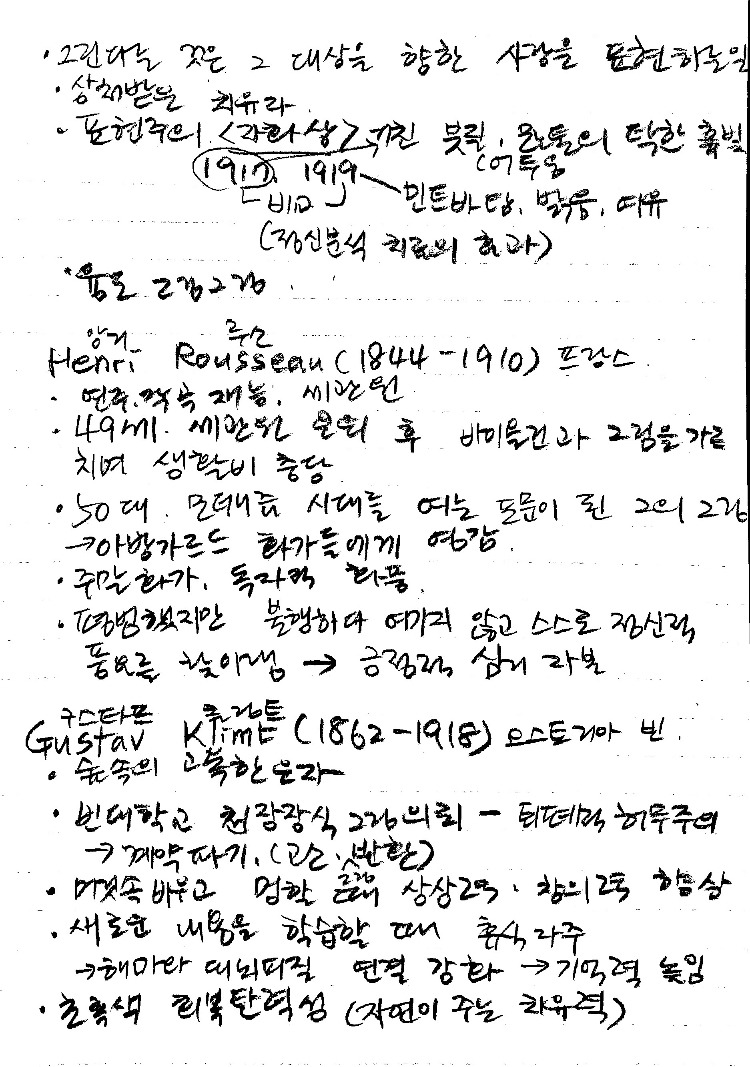 · 그린다는 것은 그 대상을 향한 사랑을 표현하는일
· 상처받은 치유자
· 표현주의 <자화상> 거친 붓질, 톤의 탁한 흙빛
(어두움
1917, 1919 민트바탕, 밝음, 여유
비교
(정신분석 치료의 효과)
· 그림그림
앙리 루소
Henri Rousseau (1844-1910) 프랑스
· 연주,작곡 재능, 세관원
· 49세. 세관원 은퇴 후 바이올린과 그림을 가르
치며 생활비 충당
· 50대 모더니즘 시대를 여는 포문이 된 그의 그림
→아방가르드 화가들에게 영감
· 주말화가, 독자적 화풍
· 평범했지만 불행하다 여기지 않고 스스로 정신적
풍요를 찾아냄 → 긍정적 심리 자본
구스타프 클림트
Gustav Klimt (1862-1918) 오스트리아 빈
· 숲속의 고독한은자
· 빈대학교 천장장식 그림의뢰 - 퇴폐적 허무주의
→ 계약파기. (고소, 반환)
· 머릿속 비우고 멍할 때 상상력, 창의력 향상
· 새로운 내용을 학습할 때 휴식 자주
→해마와 대뇌피질 연결 강화 → 기억력 높임
· 초록색 회복탄력성 (자연이 주는 치유력)